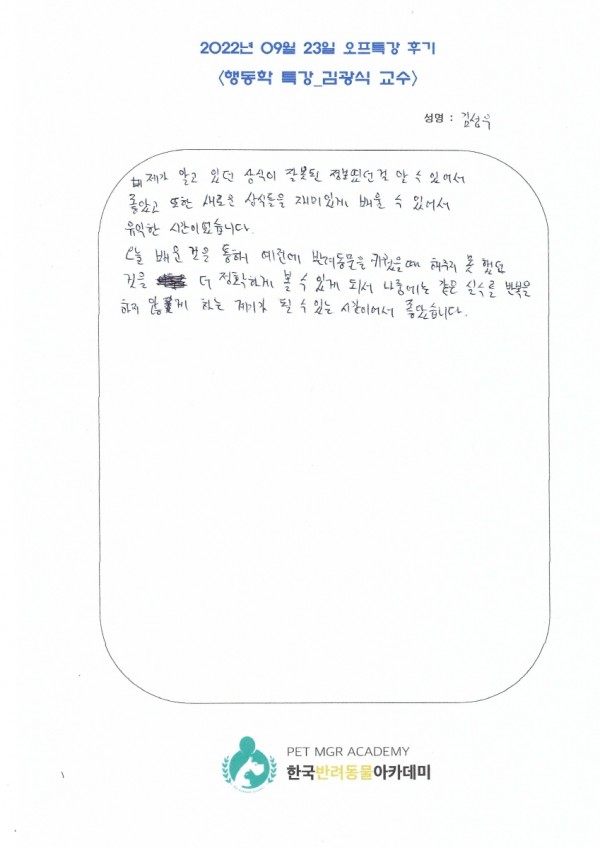 2022년 09월 23일 오프특강 후기
<행동학 특강_김광식 교수>
성명 : 김성욱
제가 알고 있던 상식이 잘못된 정보였던걸 알 수 있어서
좋았고 또한 새로운 상식들을 재미있게 배울 수 있어서
유익한 시간이었습니다.
오늘 배운 것을 통해 예전에 반려동물을 키웠을때 해주지 못 했던
것을 더 정확하게 볼 수 있게 되서 나중에는 같은 실수를 반복을
하지 않게 하는 계기가 될 수 있는 시간이어서 좋았습니다.
PET MGR ACADEMY
한국반려동물아카데미